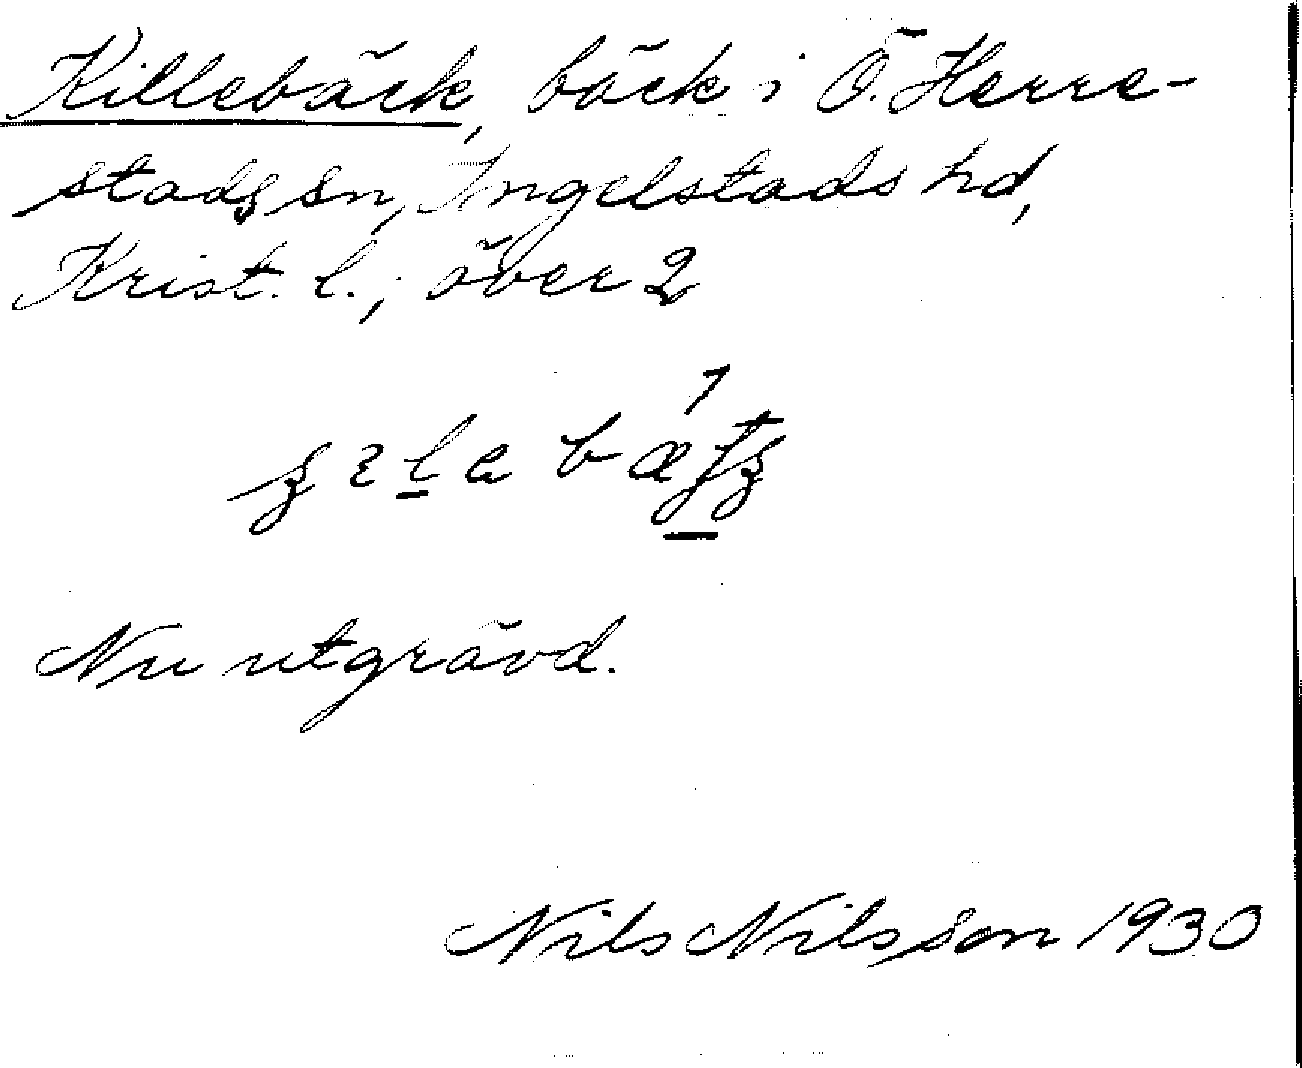 Killebäck, bäck i Ö. Herre-
stads sn, Ingelstads hd,
Krist. l.; över 2
Nu utgrävd.
Nils Nilsson 1930